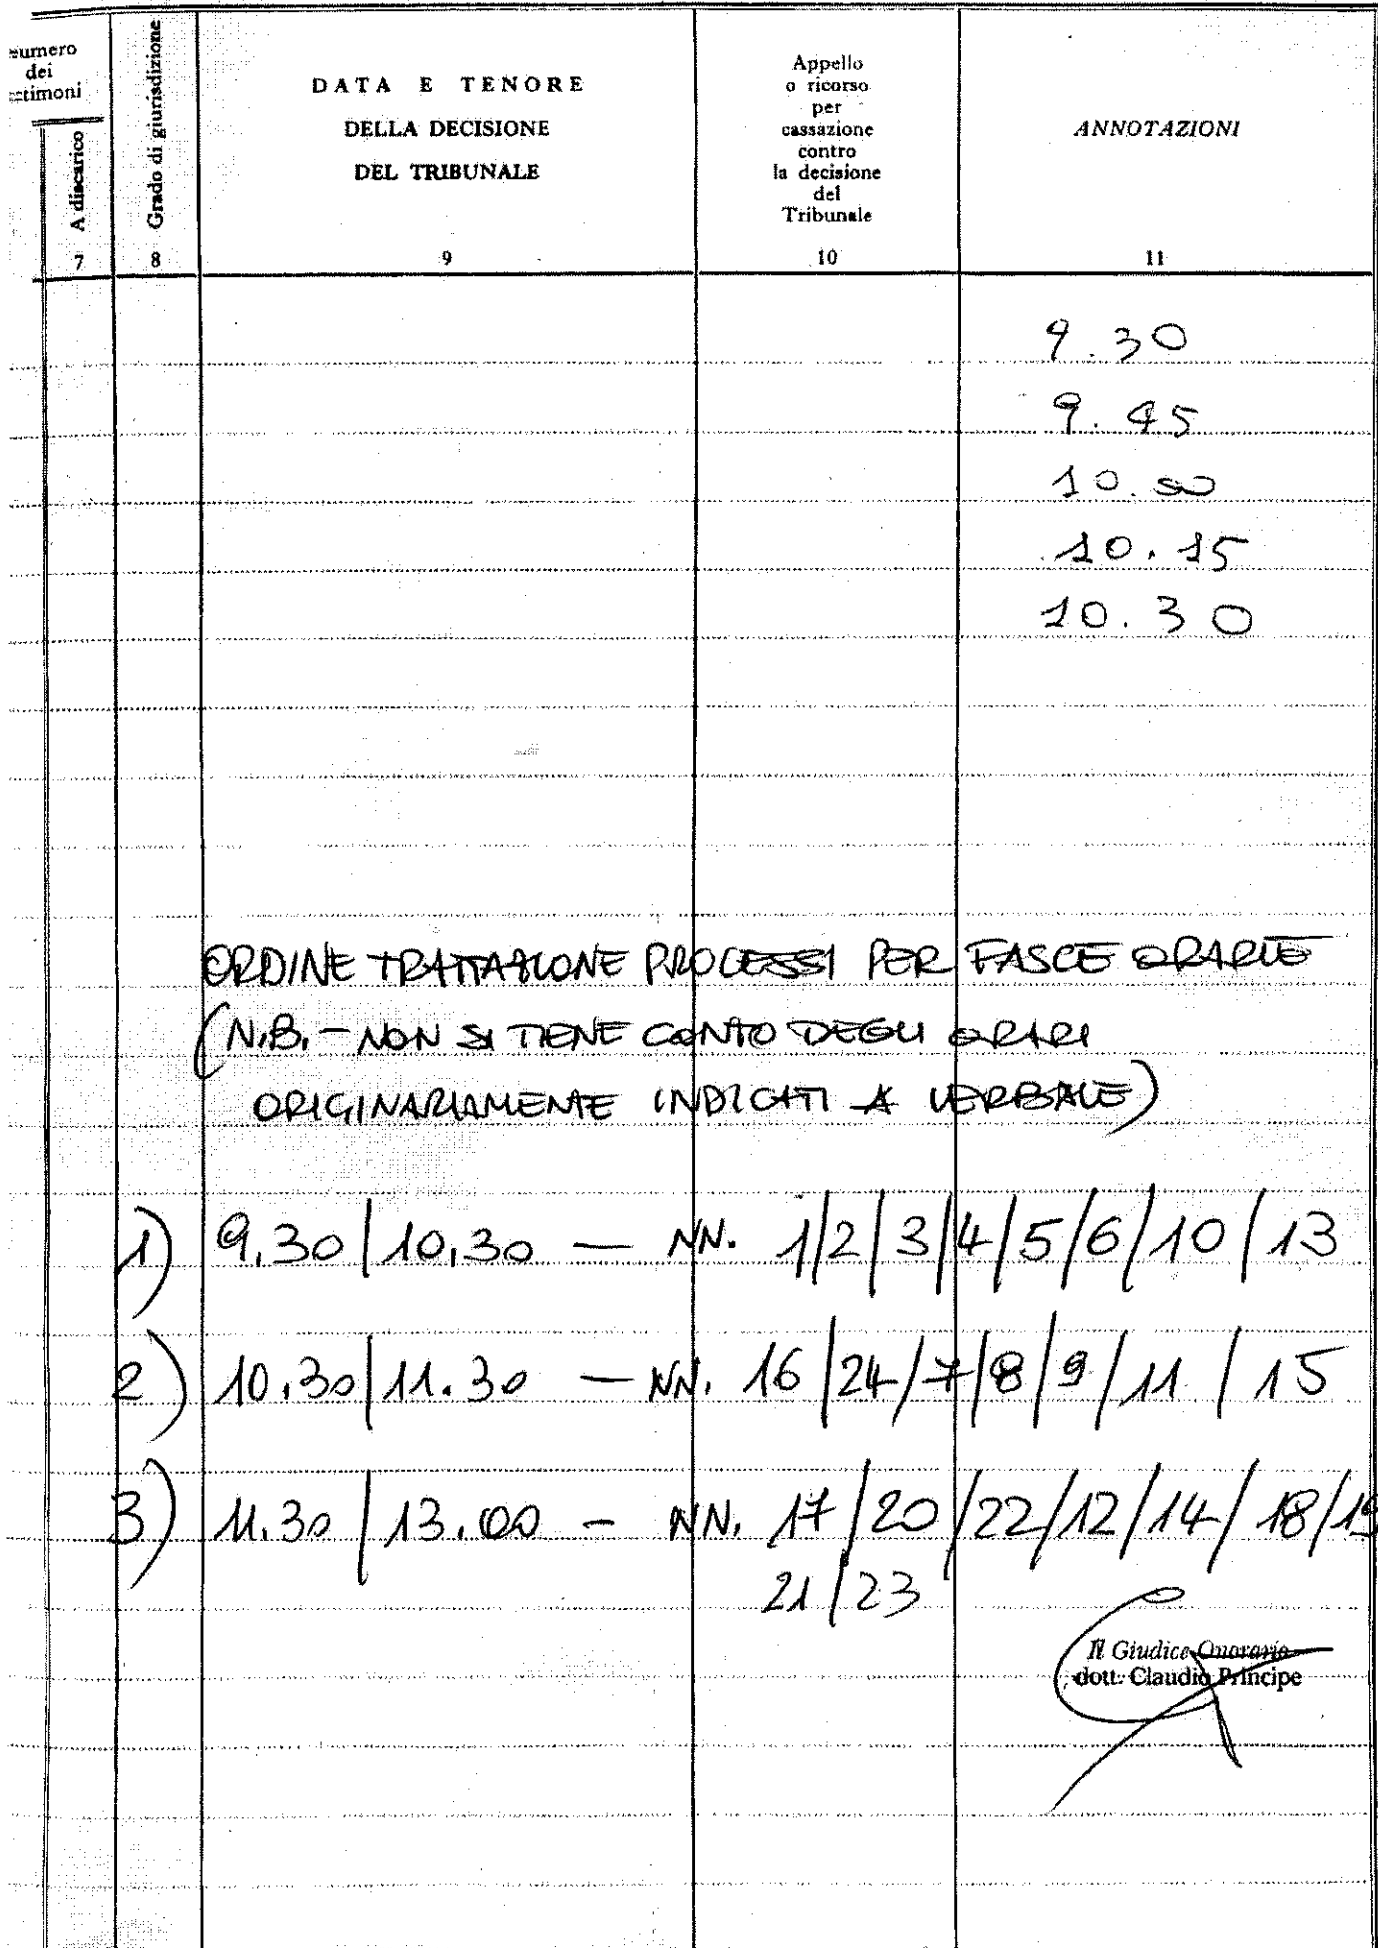 numero
dei
testimoni
A discarico
7
Grado di giurisdizione
8
DATA E TENORE
DELLA DECISIONE
DEL TRIBUNALE
9
Appello
o ricorso
per
cassazione
contro
la decisione
del
Tribunale
10
ANNOTAZIONI
11
9.30
9.45
10.00
10.15
10.30
ORDINE TRATTAZIONE PROCESSI PER FASCE ORARIE
(N.B. - NON SI TIENE CONTO DEGLI ORARI
ORIGINARIAMENTE INDICATI A VERBALE)
1) 9,30 / 10,30 — NN. 1/2/3/4/5/6/10/13
2) 10,30/11.30 — NN. 16/24/7/8/9/11/15
3) 11.30 / 13.00 - NN. 17/20/22/12/14/18/19
21/23
Il Giudice Onorario
dott. Claudio Principe